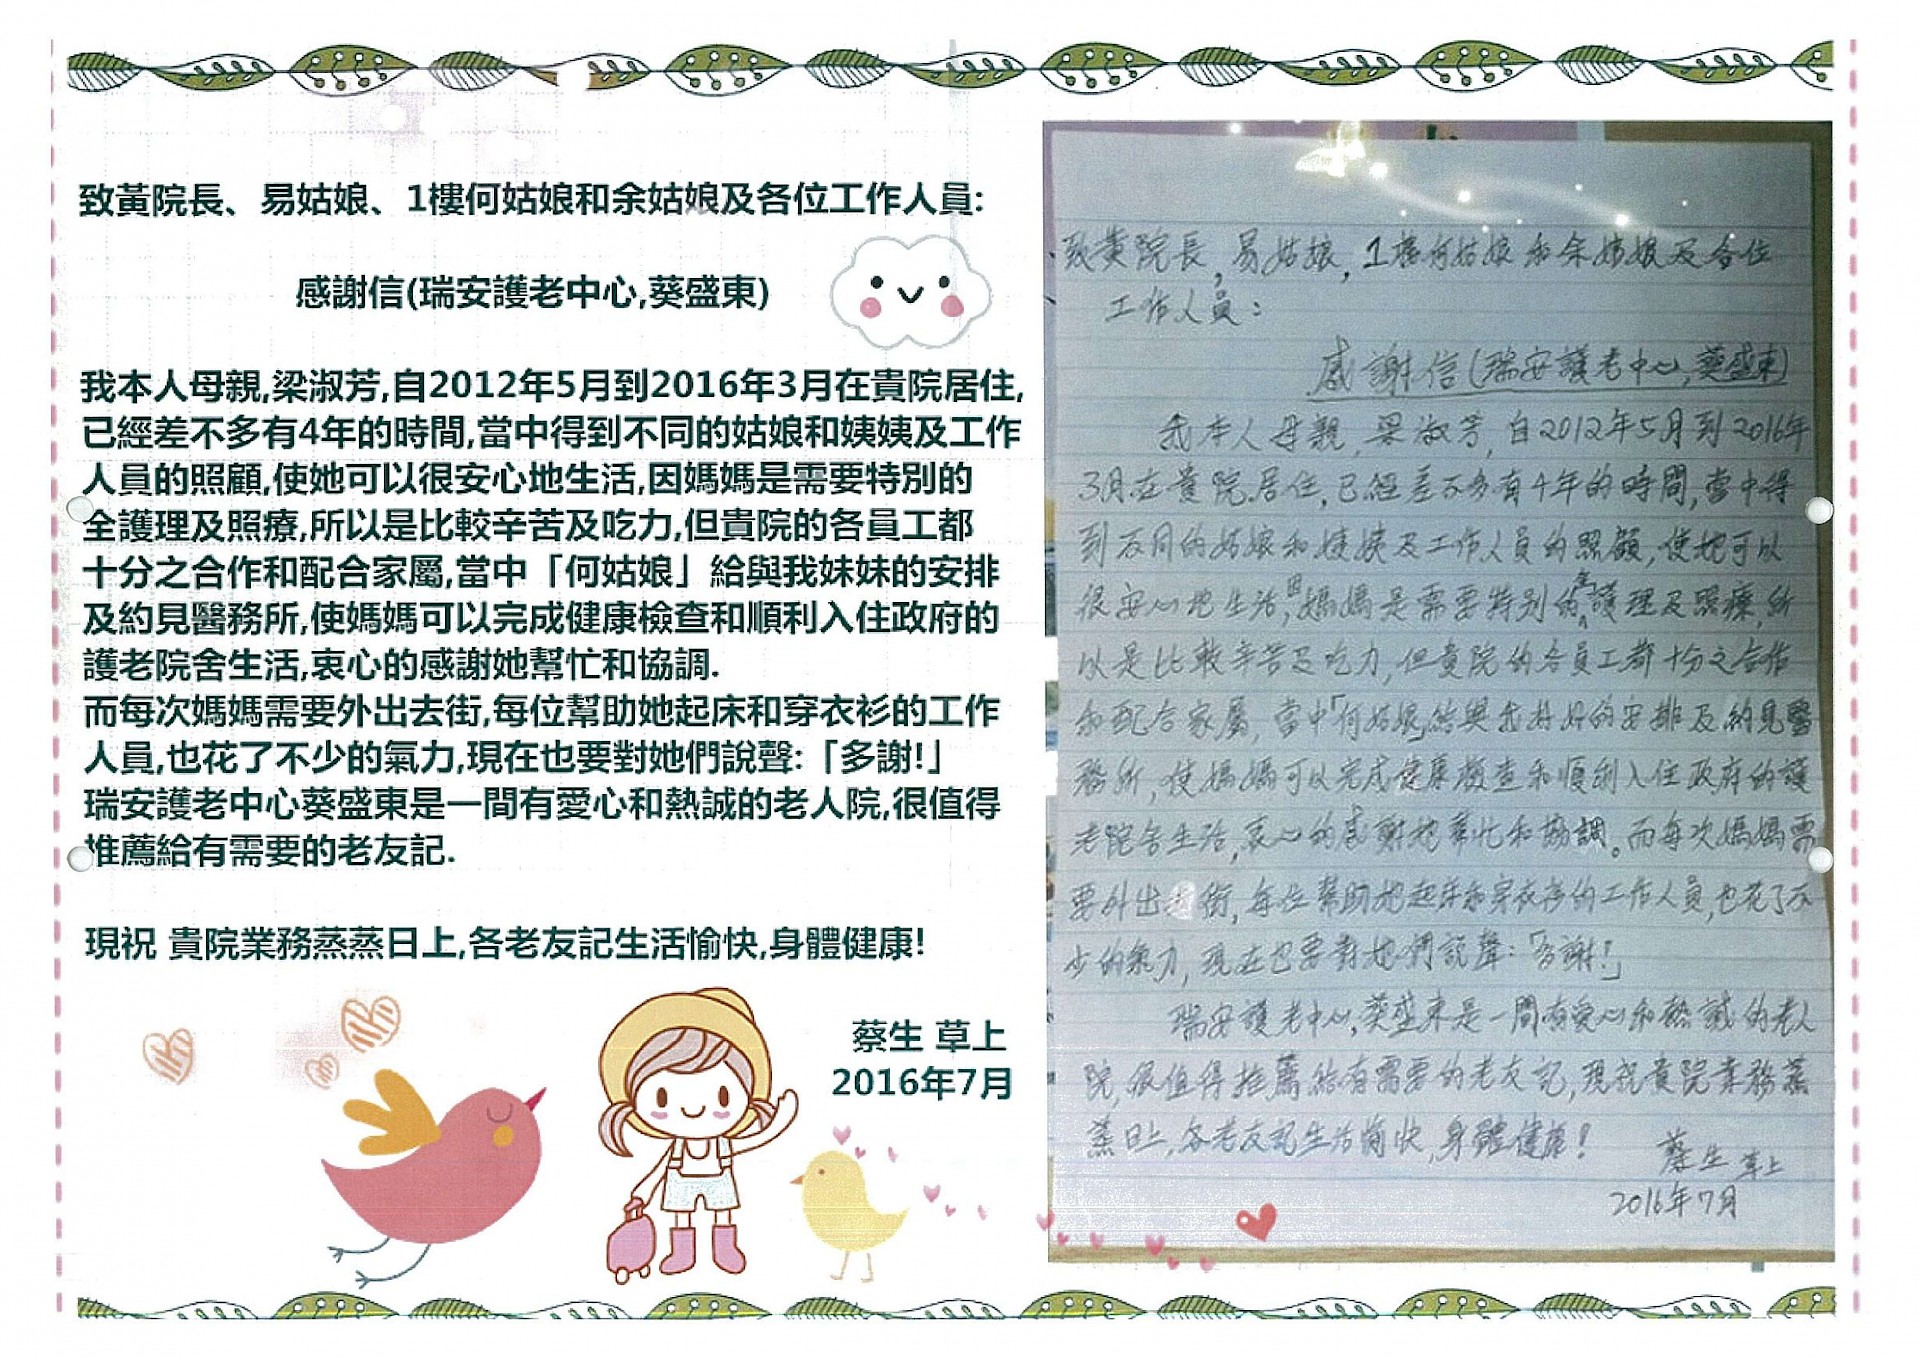 致黃院長、易姑娘、1樓何姑娘和余姑娘及各位工作人員:
感謝信(瑞安護老中心,葵盛東)
我本人母親,梁淑芳,自2012年5月到2016年3月在貴院居住,
已經差不多有4年的時間,當中得到不同的姑娘和姨姨及工作
人員的照顧,使她可以很安心地生活,因媽媽是需要特別的
全護理及照療,所以是比較辛苦及吃力,但貴院的各員工都
十分之合作和配合家屬,當中「何姑娘」給與我妹妹的安排
及約見醫務所,使媽媽可以完成健康檢查和順利入住政府的
護老院舍生活,衷心的感謝她幫忙和協調.
而每次媽媽需要外出去街,每位幫助她起床和穿衣衫的工作
人員,也花了不少的氣力,現在也要對她們說聲:「多謝!」
瑞安護老中心葵盛東是一間有愛心和熱誠的老人院,很值得
推薦給有需要的老友記.
現祝 貴院業務蒸蒸日上,各老友記生活愉快,身體健康!
蔡生 草上
2016年7月
致黃院長,易姑娘,1樓何姑娘和余姑娘及各位
工作人員:
感謝信(瑞安護老中心,葵盛東)
我本人母親,梁淑芳,自2012年5月到2016年
3月在貴院居住,已經差不多有4年的時間,當中得
到不同的姑娘和姨姨及工作人員的照顧,使她可以
很安心地生活,因媽媽是需要特別的全護理及照療,所
以是比較辛苦及吃力,但貴院的各員工都十分之合作
和配合家屬,當中「何姑娘」給與我妹妹的安排及約見醫
務所,使媽媽可以完成健康檢查和順利入住政府的護
老院舍生活,衷心的感謝她幫忙和協調。而每次媽媽需
要外出去街,每位幫助她起床和穿衣衫的工作人員,也花了不
少的氣力,現在也要對她們說聲:「多謝!」
瑞安護老中心,葵盛東是一間有愛心和熱誠的老人
院,很值得推薦給有需要的老友記,現祝貴院業務蒸
蒸日上,各老友記生活愉快,身體健康!
蔡生 草上
2016年7月